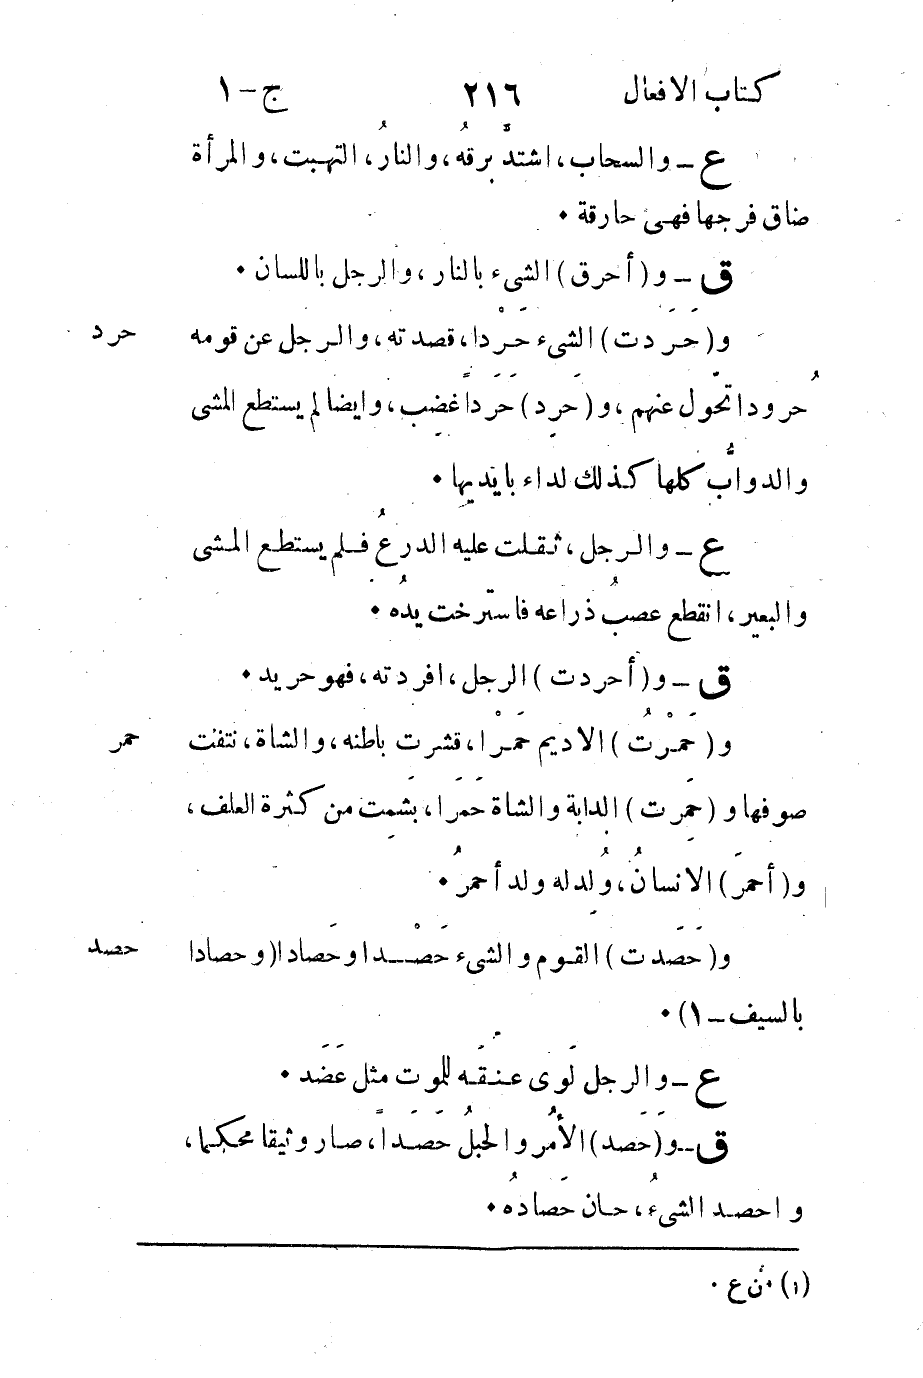 كتاب الافعال ٢١٦ ج-١
ع – والسحاب، اشتدَّ برقهُ، والنارُ، التهبت، والمرأة
ضاق فرجها فهى حارقة •
ق – و(أحرق) الشىء بالنار، والرجل باللسان •
و(حَرَدت) الشىء حَرْدا، قصدته، والرجل عن قومه حرد
حُرودا تحوّل عنهم، و(حرِد) حَرَداً غضِب، وايضا لم يستطع المشى
والدوابُّ كلها كذلك لداء بايديها •
ع – والرجل، ثقلت عليه الدرعُ فلم يستطع المشى
والبعير، انقطع عصبُ ذراعه فاسترخت يدُه •
ق – و(أحردت) الرجل، افردته، فهو حريد •
و(حَمْرتُ) الاديم حَمْرا، قشرت باطنه، والشاة، نتفت حمر
صوفها و(حَمِرت) الدابة والشاة حَمَرا، بشِمَت من كثرة العلف،
و(أحمرَ) الانسانُ، وُلِد له ولد أحمرُ •
و(حَصَدت) القوم والشىء حَصْدا وحَصادا (وحصادا حصد
بالسيف – ١) •
ع – والرجل لَوى عنُقَه للموت مثل عَصَد •
ق – و(حَصَد) الأمُر والحبلُ حَصَداً، صار وثيقا محكما،
واحصد الشىءُ، حان حَصادهُ •
(١) •ن ع •